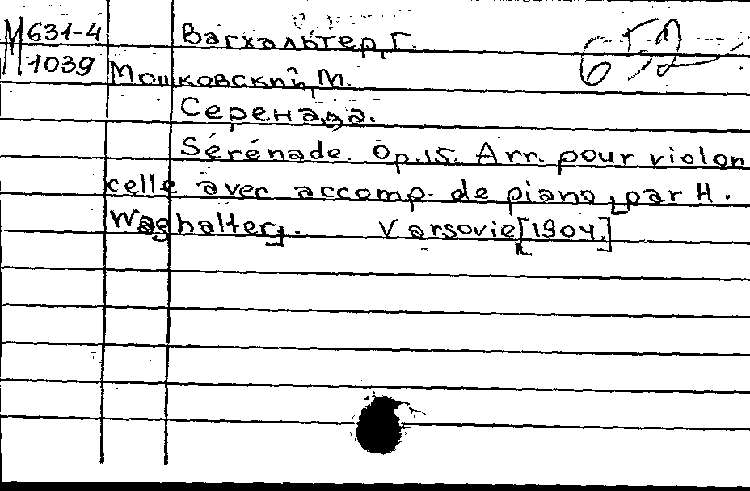 М631-4 Вагхальтер, Г.
1039 Мошковский, М.
Серенада.
Sérénade. Op.15. Arr. pour violon
celle avec accomp. de piano, par H.
Waghalter. Varsovie [1904.]